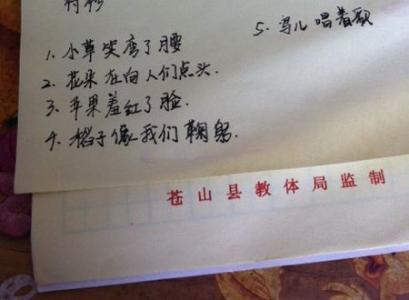 1. 小草笑弯了腰
2. 花朵在向人们点头.
3. 苹果羞红了脸.
4. 稻子像我们鞠躬.
5. 鸟儿唱着歌
苍山县教体局监制